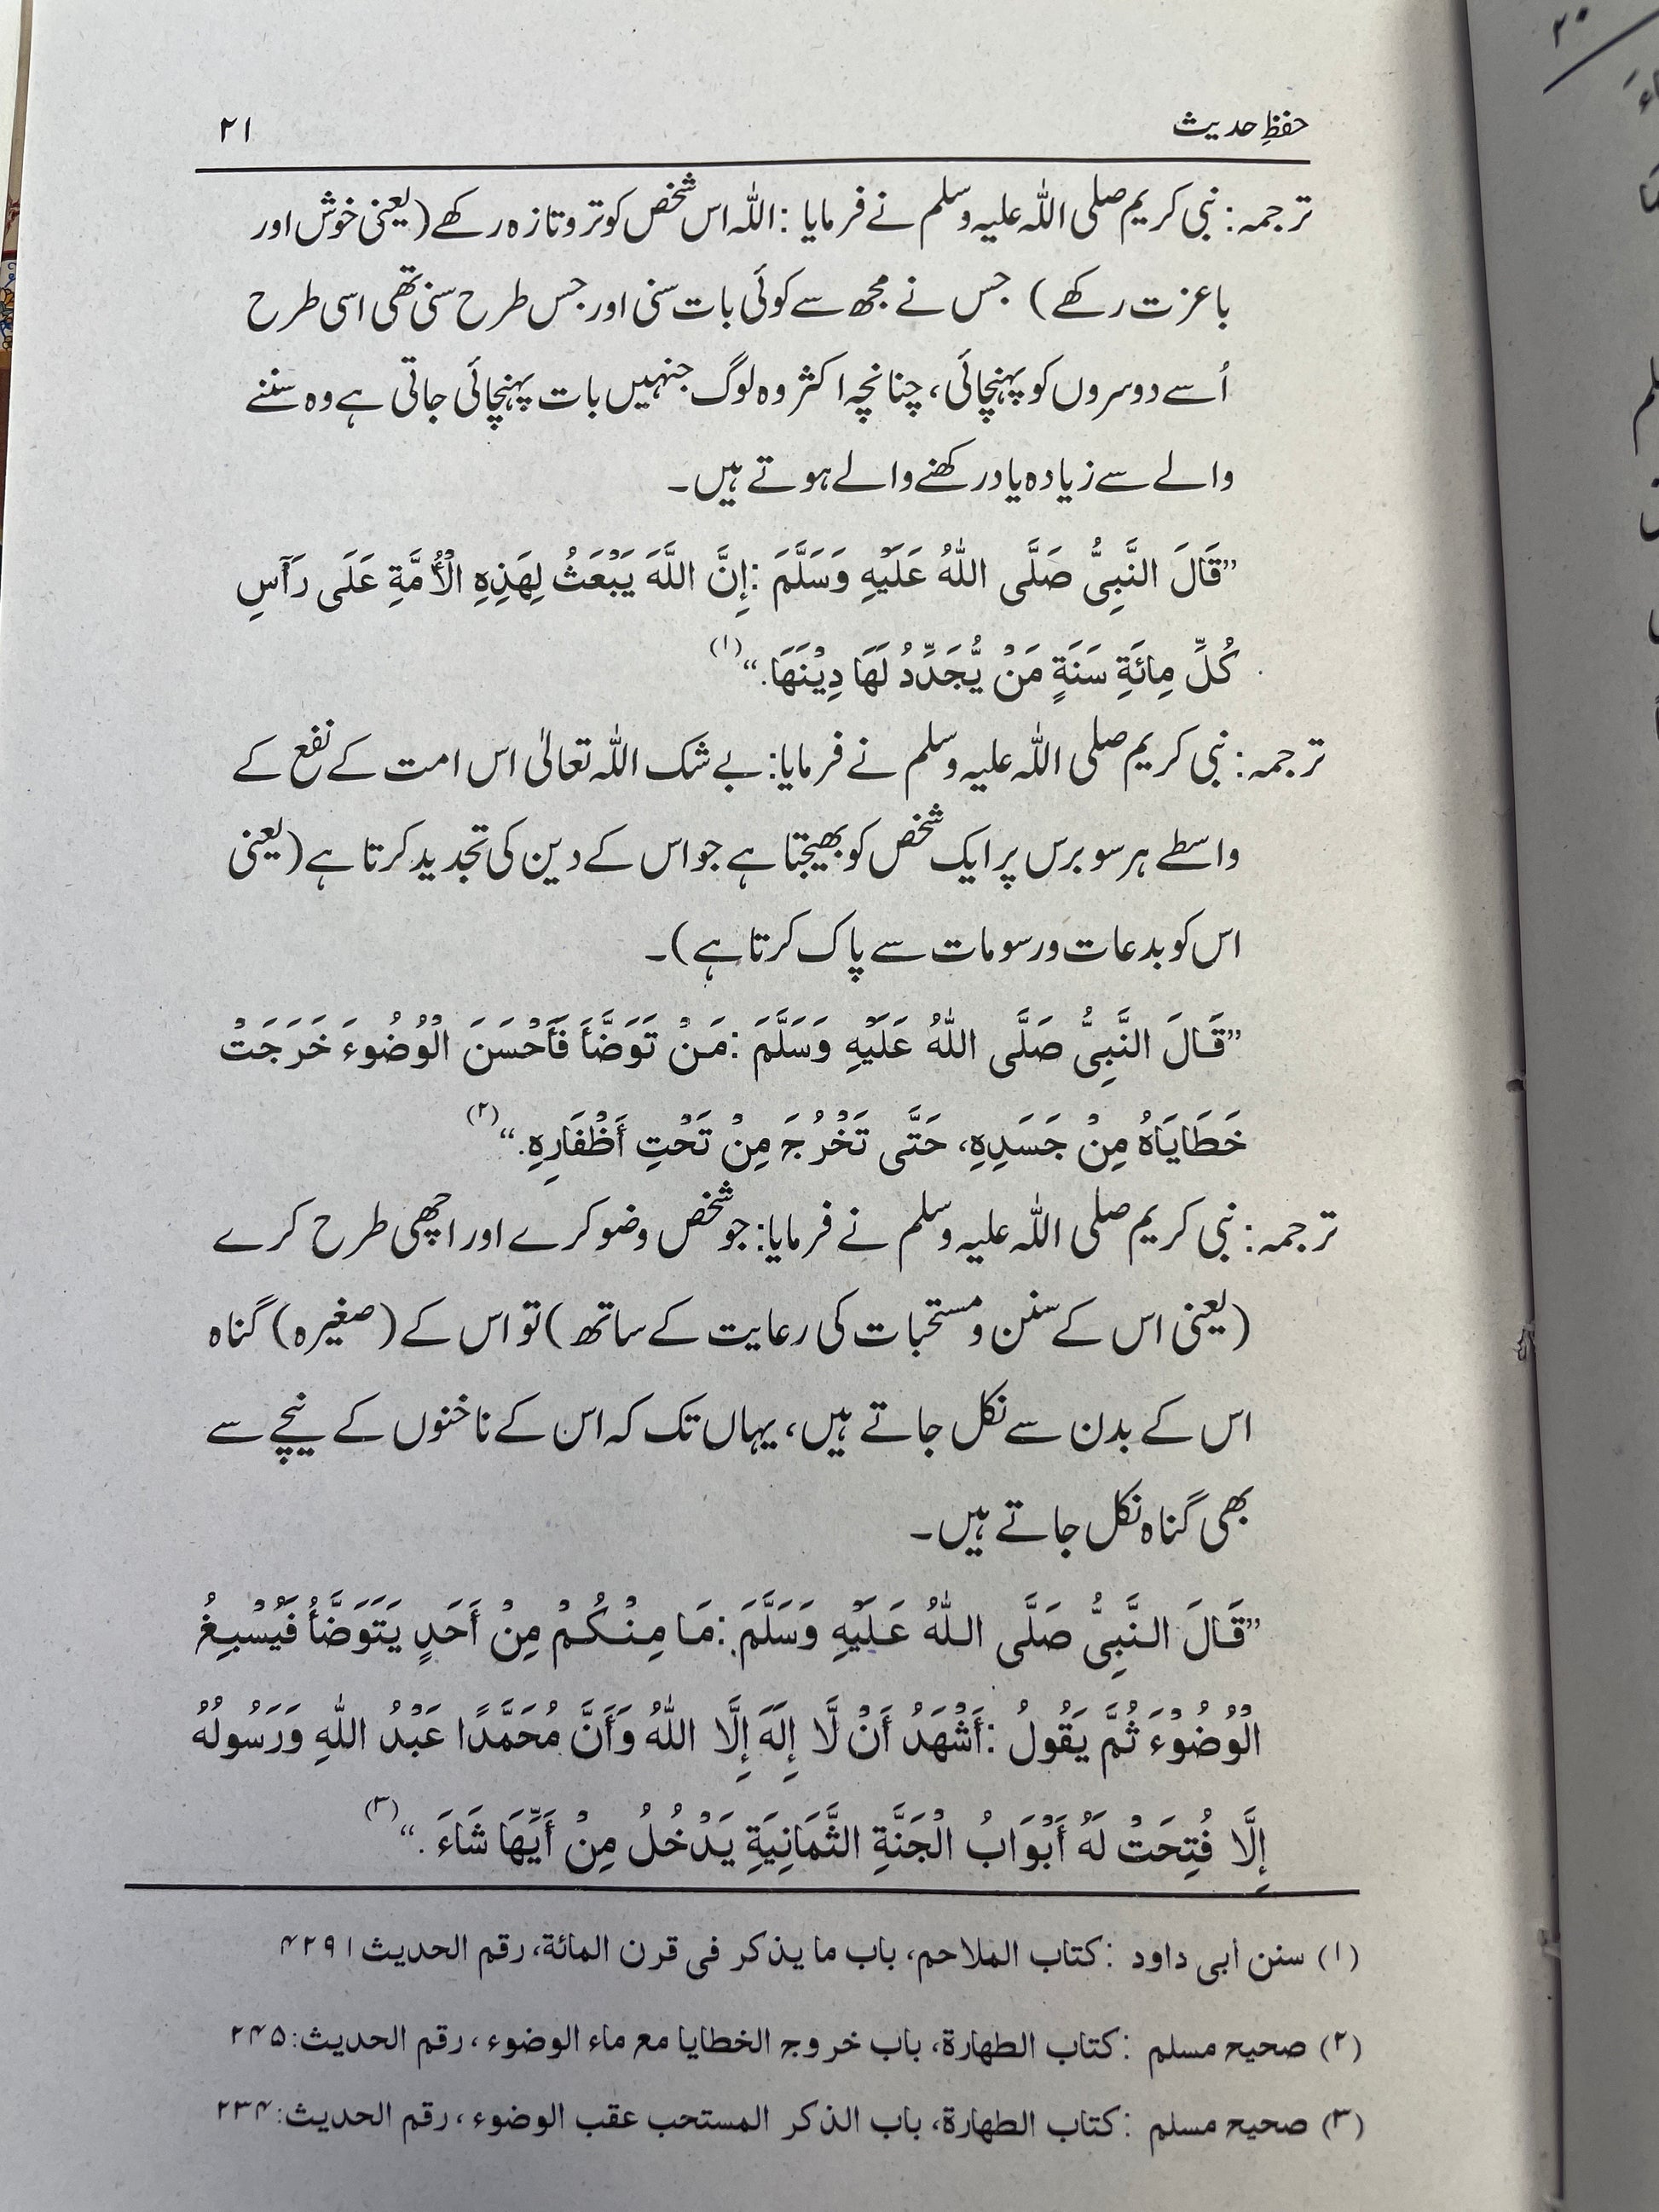 حفظِ حدیث ۲۱
ترجمہ: نبی کریم صلی اللہ علیہ وسلم نے فرمایا: اللہ اس شخص کو تر و تازہ رکھے (یعنی خوش اور
باعزت رکھے) جس نے مجھ سے کوئی بات سنی اور جس طرح سنی تھی اسی طرح
اُسے دوسروں کو پہنچائی، چنانچہ اکثر وہ لوگ جنہیں بات پہنچائی جاتی ہے وہ سننے
والے سے زیادہ یاد رکھنے والے ہوتے ہیں۔
”قَالَ النَّبِیُّ صَلَّی اللّٰهُ عَلَیْهِ وَسَلَّمَ :إِنَّ اللَّهَ یَبْعَثُ لِهَذِهِ الْأُمَّةِ عَلَی رَأْسِ
کُلِّ مِائَةِ سَنَةٍ مَنْ یُّجَدِّدُ لَهَا دِیْنَهَا.“(۱)
ترجمہ: نبی کریم صلی اللہ علیہ وسلم نے فرمایا: بے شک اللہ تعالیٰ اس امت کے نفع کے
واسطے ہر سو برس پر ایک شخص کو بھیجتا ہے جو اس کے دین کی تجدید کرتا ہے (یعنی
اس کو بدعات ورسومات سے پاک کرتا ہے)۔
”قَالَ النَّبِیُّ صَلَّی اللّٰهُ عَلَیْهِ وَسَلَّمَ :مَنْ تَوَضَّأَ فَأَحْسَنَ الْوُضُوءَ خَرَجَتْ
خَطَایَاهُ مِنْ جَسَدِهِ، حَتَّی تَخْرُجَ مِنْ تَحْتِ أَظْفَارِهِ.“(۲)
ترجمہ: نبی کریم صلی اللہ علیہ وسلم نے فرمایا: جو شخص وضو کرے اور اچھی طرح کرے
(یعنی اس کے سنن و مستحبات کی رعایت کے ساتھ) تو اس کے (صغیرہ) گناہ
اس کے بدن سے نکل جاتے ہیں، یہاں تک کہ اس کے ناخنوں کے نیچے سے
بھی گناہ نکل جاتے ہیں۔
”قَالَ النَّبِیُّ صَلَّی اللّٰهُ عَلَیْهِ وَسَلَّمَ :مَا مِنْکُمْ مِنْ أَحَدٍ یَتَوَضَّأُ فَیُسْبِغُ
الْوُضُوْءَ ثُمَّ یَقُولُ :أَشْهَدُ أَنْ لَّا إِلَهَ إِلَّا اللّٰهُ وَأَنَّ مُحَمَّدًا عَبْدُ اللّٰهِ وَرَسُولُهُ
إِلَّا فُتِحَتْ لَهُ أَبْوَابُ الْجَنَّةِ الثَّمَانِیَةِ یَدْخُلُ مِنْ أَیِّهَا شَاءَ .“(۳)
(۱) سنن أبی داود :کتاب الملاحم، باب ما یذکر فی قرن المائة، رقم الحدیث ۴۲۹۱
(۲) صحیح مسلم :کتاب الطهارة، باب خروج الخطایا مع ماء الوضوء ، رقم الحدیث:۲۴۵
(۳) صحیح مسلم :کتاب الطهارة، باب الذکر المستحب عقب الوضوء ، رقم الحدیث:۲۳۴
۲۰